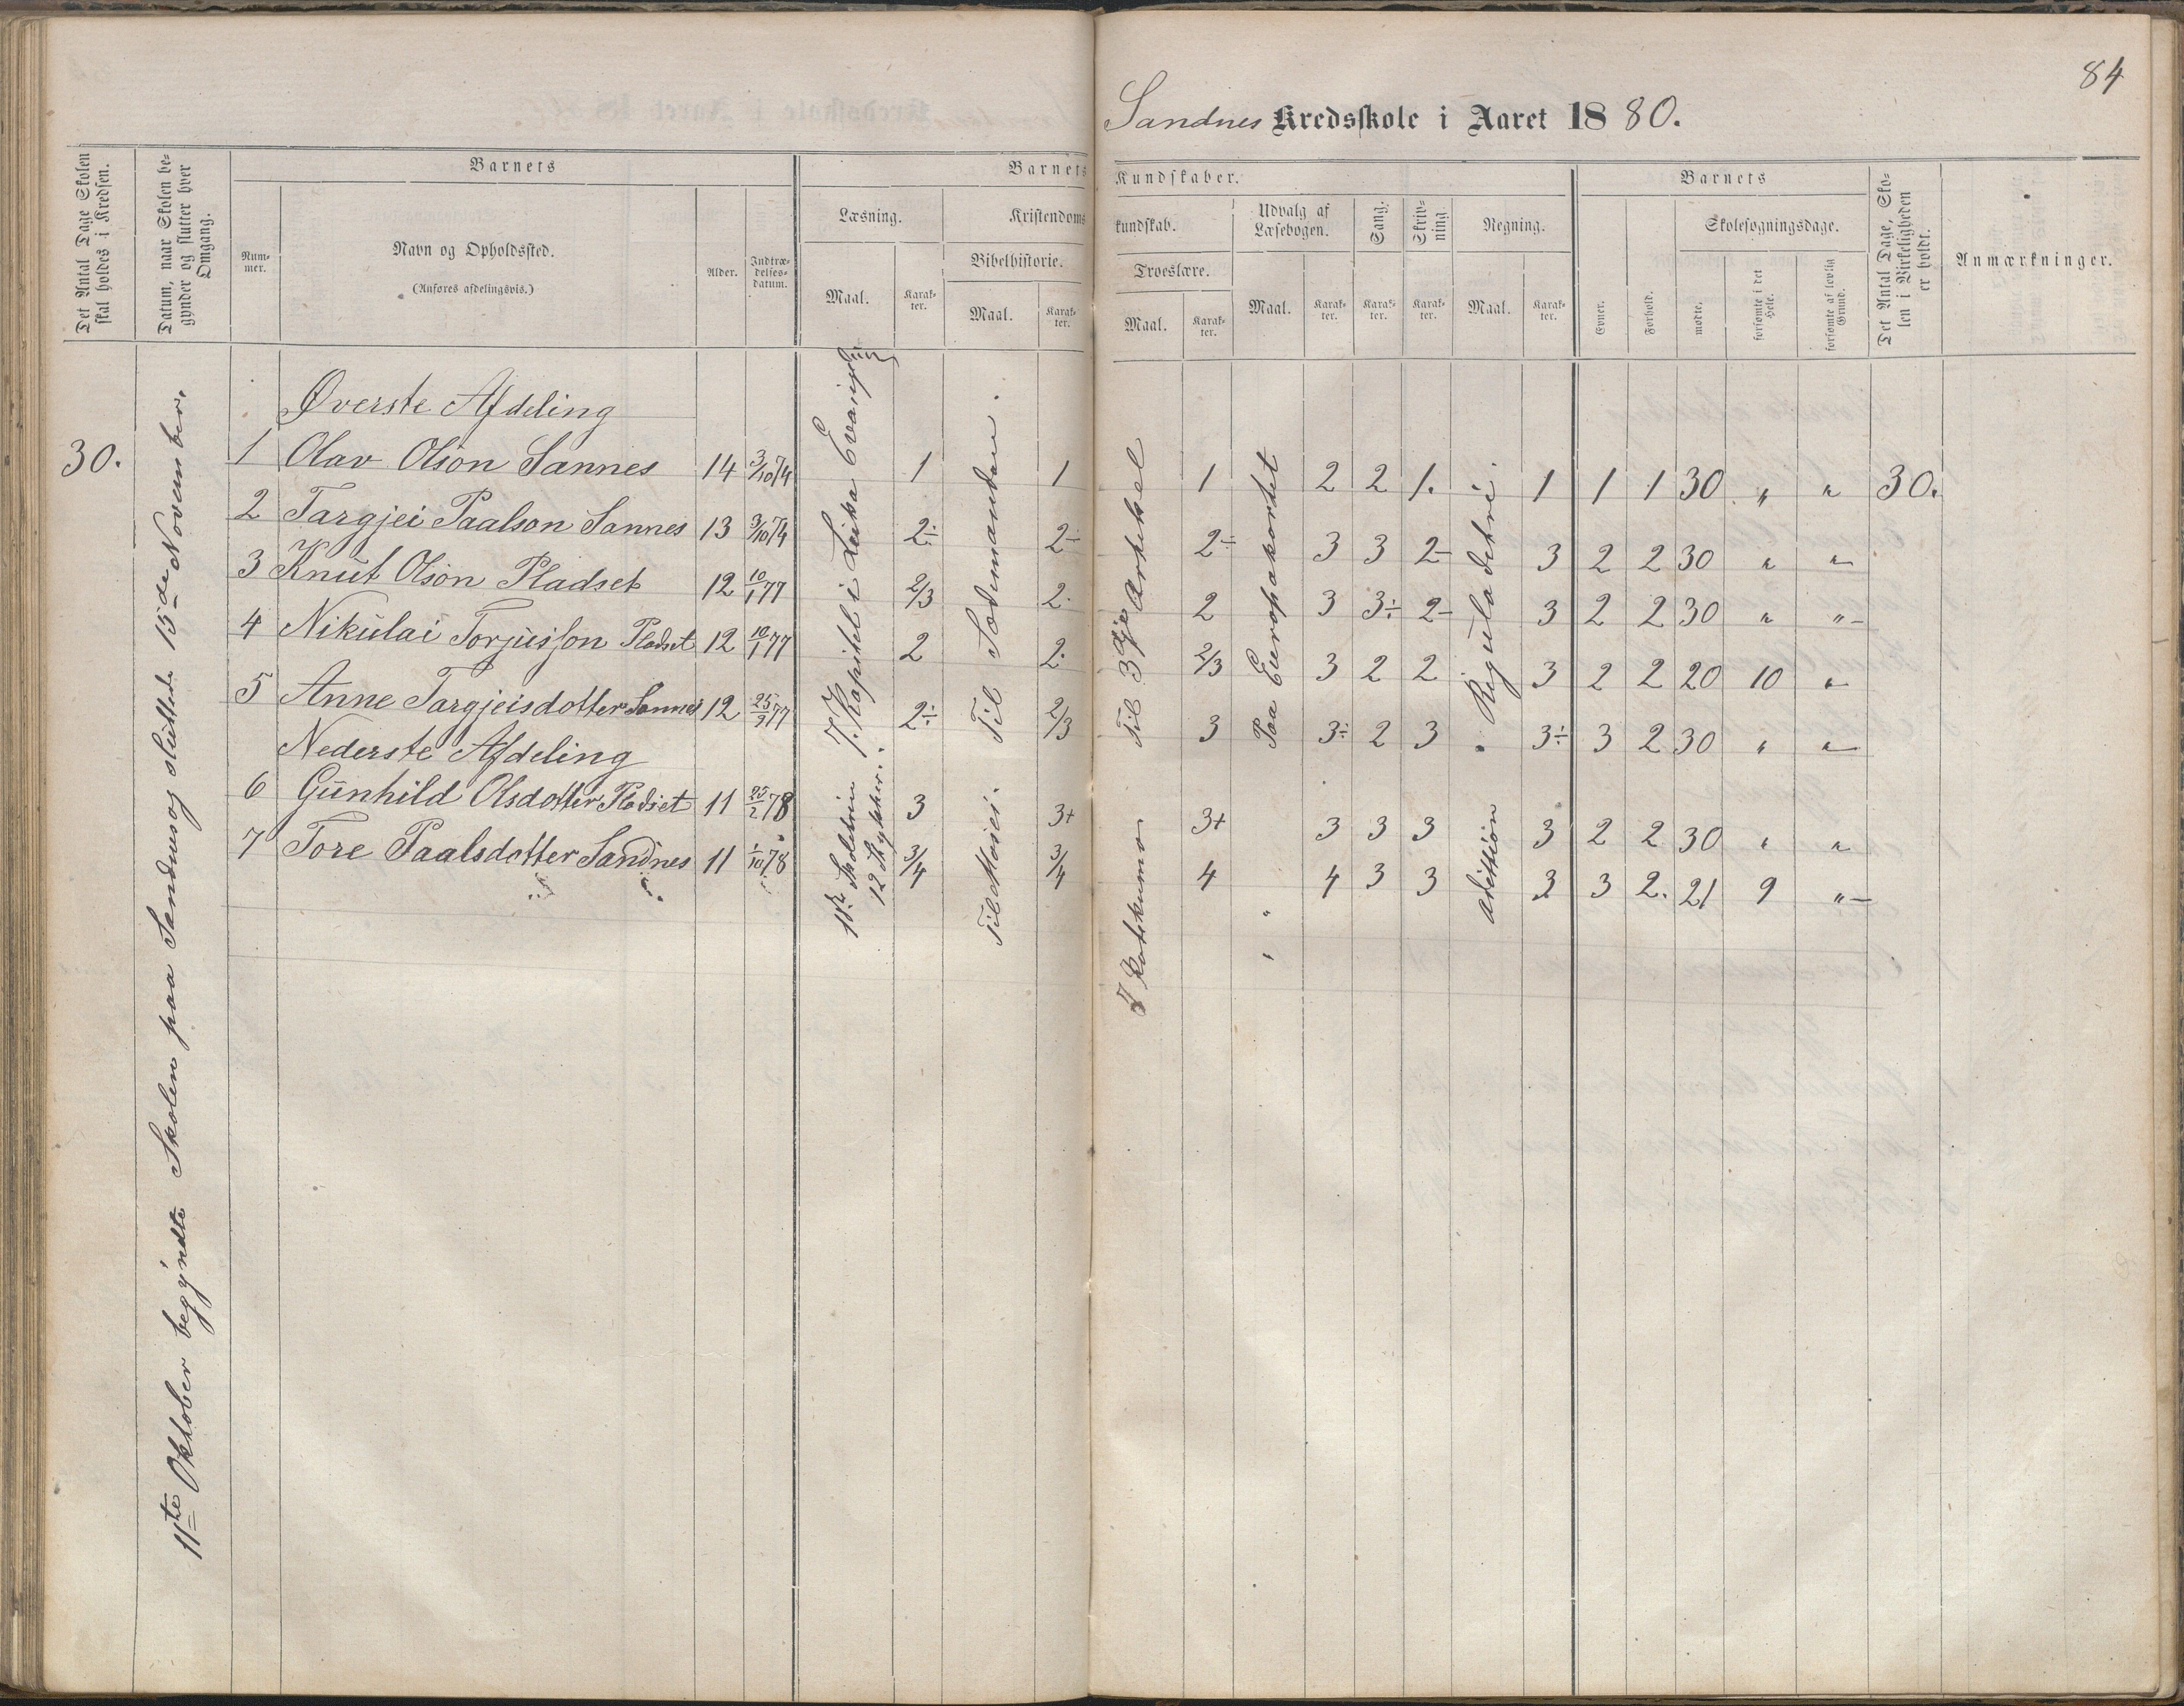 84
Sandnes Kredsskole i Aaret 1880.
Det Antal Dage Skolen skal holdes i Kredsen.
Datum, naar Skolen begynder og slutter hver Omgang.
Barnets
Nummer.
Navn og Opholdssted.
(Anføres afdelingsvis.)
Alder.
Indtrædelsesdatum.
Barnets Kundskaber.
Læsning.
Maal.
Karakter.
Kristendomskundskab.
Bibelhistorie.
Maal.
Karakter.
Troeslære.
Maal.
Karakter.
Udvalg af Læsebogen.
Maal.
Karakter.
Sang.
Karakter.
Skrivning.
Karakter.
Regning.
Maal.
Karakter.
Barnets
Evner.
Forhold.
Skolesøgningsdage.
mødte.
forsømte i det Hele.
forsømte af lovlig Grund.
Det Antal Dage, Skolen i Virkeligheden er holdt.
Anmærkninger.
11te Oktober begyndte Skolen paa Sandnes og sluttede 15de November.
Øverste Afdeling
30. 1 Olav Olson Sannes 14 3/10 74 1 1 1 2 2 1. 1 1 1 30 " " 30.
2 Targjei Paalson Sannes 13 3/10 74 2÷ 2÷ 2÷ 3 3 2- 3 2 2 30 " "
3 Knut Olson Pladset 12 10/1 77 2/3 2. 2 3 3÷ 2- 3 2 2 30 " "
4 Nikulai Torjusson Pladset 12 10/1 77 2 2. 2/3 3 2 2 3 2 2 20 10 "
5 Anne Targjeisdotter Sannes 12 25/2 77 2÷ 2/3 3 3÷ 2 3 3÷ 3 2 30 " "
Nederste Afdeling
6 Gunhild Olsdotter Pladset 11 25/2 78 3 3+ 3+ 3 3 3 3 2 2 30 " "
7 Tore Paalsdotter Sandnes 11 1/10 78 3/4 3/4 4 4 3 3 3 3 2. 21 9 "
7. Kapitel i Lukas Evangelium
12 Stykker.
Til Sædemanden.
Til Moses.
Til 3dje Artikel
I Katekismen
Paa Europakortet
Regula detri.
Addition